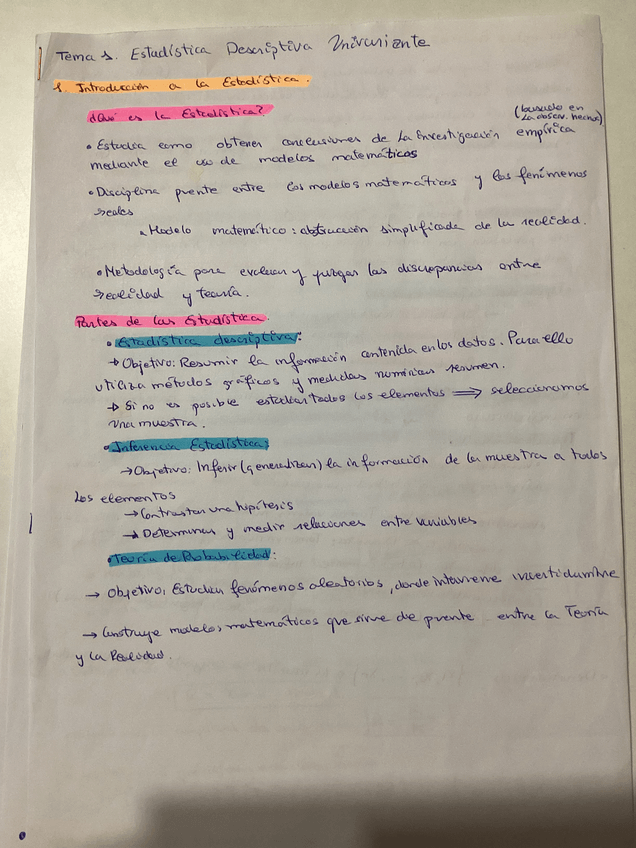 Tema 1. Estadística Descriptiva Univariante
1. Introducción a la Estadística.
¿Qué es la Estadística?
(basado en
la observ. hechos)
• Estudia como obtener conclusiones de la Investigación empírica
mediante el uso de modelos matemáticos
• Disciplina puente entre los modelos matemáticos y los fenómenos
reales
• Modelo matemático: abstracción simplificada de la realidad.
• Metodología para evaluar y juzgar las discrepancias entre
realidad y teoría.
Partes de las Estadística.
• Estadística descriptiva:
→ Objetivo: Resumir la información contenida en los datos. Para ello
utiliza métodos gráficos y medidas numéricas resumen.
→ Si no es posible estudiar todos los elementos ⟹ seleccionamos
una muestra.
• Inferencia Estadística:
→ Objetivo: Inferir (generalizar) la información de la muestra a todos
los elementos
→ Contrastar una hipótesis
→ Determinar y medir relaciones entre variables
• Teoría de Probabilidad:
→ Objetivo: Estudiar fenómenos aleatorios, donde interviene incertidumbre
→ Construye modelos matemáticos que sirve de puente entre la Teoría
y la Realidad.